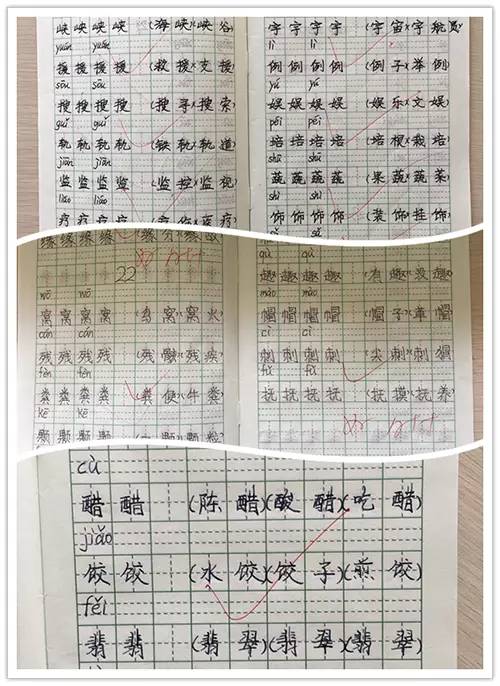 峡 峡 峡 峡 (海峡)(峡谷)
yuán yuán
援 援 援 援 (救援)(支援)
sōu sōu
搜 搜 搜 搜 (搜寻)(搜索)
guǐ guǐ
轨 轨 轨 轨 (铁轨)(轨道)
jiān jiān
监 监 监 监 (监控)(监视)
liáo liáo
疗 疗 疗 疗 疗)
宇 宇 宇 宇 (宇宙)(宇航员)
lì lì
例 例 例 例 (例子)(举例)
yú yú
娱 娱 娱 娱 (娱乐)(文娱)
péi péi
培 培 培 培 (培根)(栽培)
shū shū
蔬 蔬 蔬 蔬 (果蔬)(蔬菜)
shì shì
饰 饰 饰 饰 (装饰)(挂饰)
缘 缘 缘 缘
22
wō wō
窝 窝 窝 (鸟窝)(窝火)
cán cán
残 残 残 (残骸)(残疾)
fèn fèn
粪 粪 粪 (粪便)(牛粪)
kē kē
颗 颗 颗
qù qù
趣 趣 趣 趣 (有趣)(没趣)
mào mào
帽 帽 帽 帽 (帽子)(草帽)
cì cì
刺 刺 刺 刺 (尖刺)(刺猬)
fǔ fǔ
抚 抚 抚 抚 (抚摸)(抚养)
cù
醋 醋 (陈醋)(酸醋)(吃醋)
jiǎo
饺 饺 (水饺)(饺子)(煎饺)
fěi
翡 翡 (翡翠)(翡翠)(翡翠)